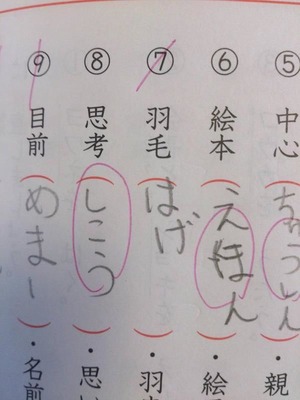 ⑤中心(ちゅうしん)・親
⑥絵本(えほん)・絵
⑦羽毛(はげ)・羽
⑧思考(しこう)・思い
⑨目前(めまー)・名前